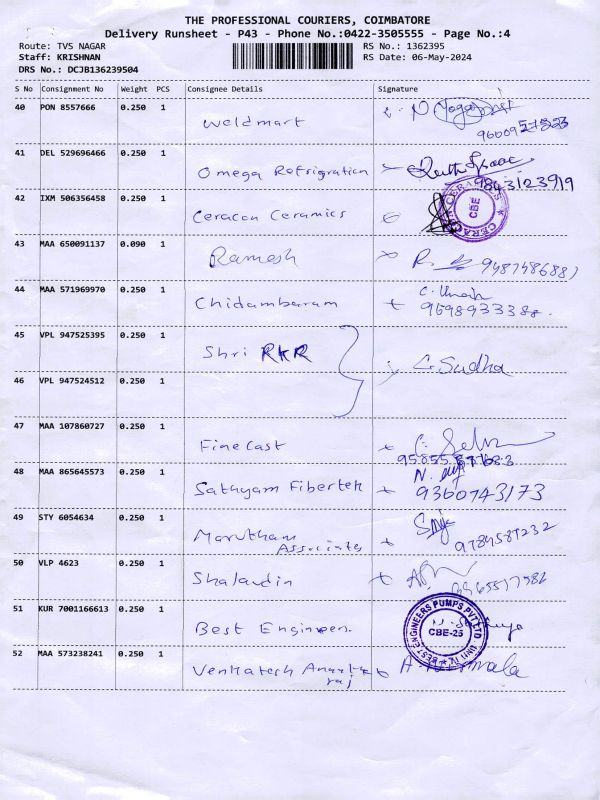 THE PROFESSIONAL COURIERS, COIMBATORE
Delivery Runsheet - P43 - Phone No.:0422-3505555 - Page No.:4
Route: TVS NAGAR
Staff: KRISHNAN
DRS No.: DCJB136239504
RS No.: 1362395
RS Date: 06-May-2024
S No Consignment No Weight PCS Consignee Details Signature
40 PON 8557666 0.250 1
Weldmart
41 DEL 529696466 0.250 1
Omega Refrigration
9843123919
42 IXM 506356458 0.250 1
Ceracon Ceramics
CBE
43 MAA 650091137 0.090 1
Ramesh
44 MAA 571969970 0.250 1
Chidambaram
45 VPL 947525395 0.250 1
Shri RKR
C. Sudha
46 VPL 947524512 0.250 1
47 MAA 107860727 0.250 1
Finecast
48 MAA 865645573 0.250 1
Sathyam Fibertek
9360743173
49 STY 6054634 0.250 1
Marutham
Associates
50 VLP 4623 0.250 1
Shalaudin
51 KUR 7001166613 0.250 1
Best Engineen.
BEST ENGINEERS PUMPS PVT LTD
CBE-25
52 MAA 573238241 0.250 1
Venkatesh
raj